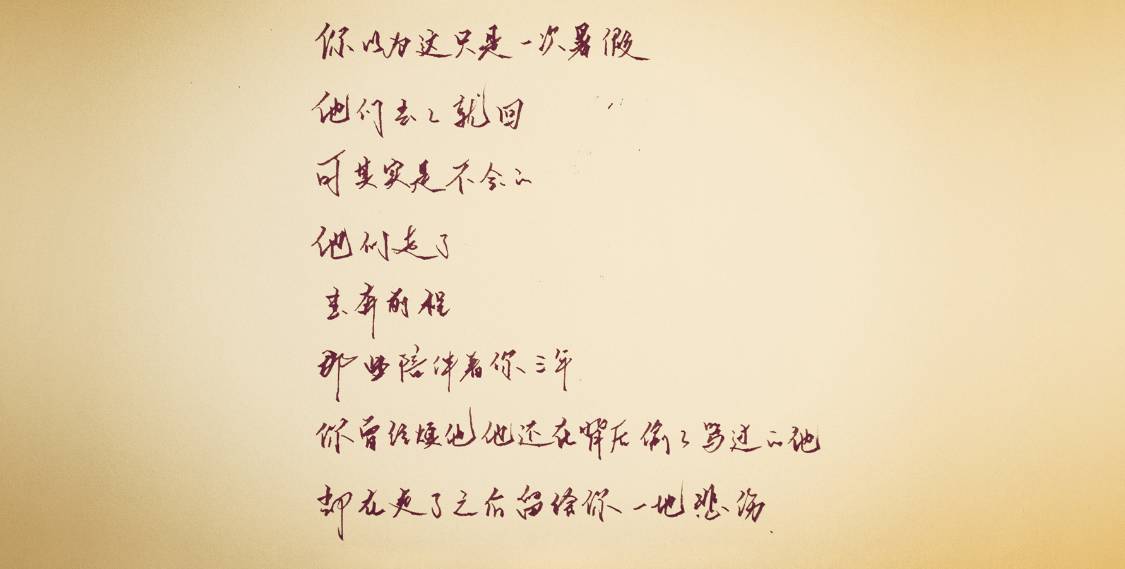 你以为这只是一次暑假
他们去去就回
可其实是不会的
他们走了
去奔前程
那些陪伴着你三年
你曾经烦他他还在背后偷偷骂过的他
却在走了之后留给你一地悲伤